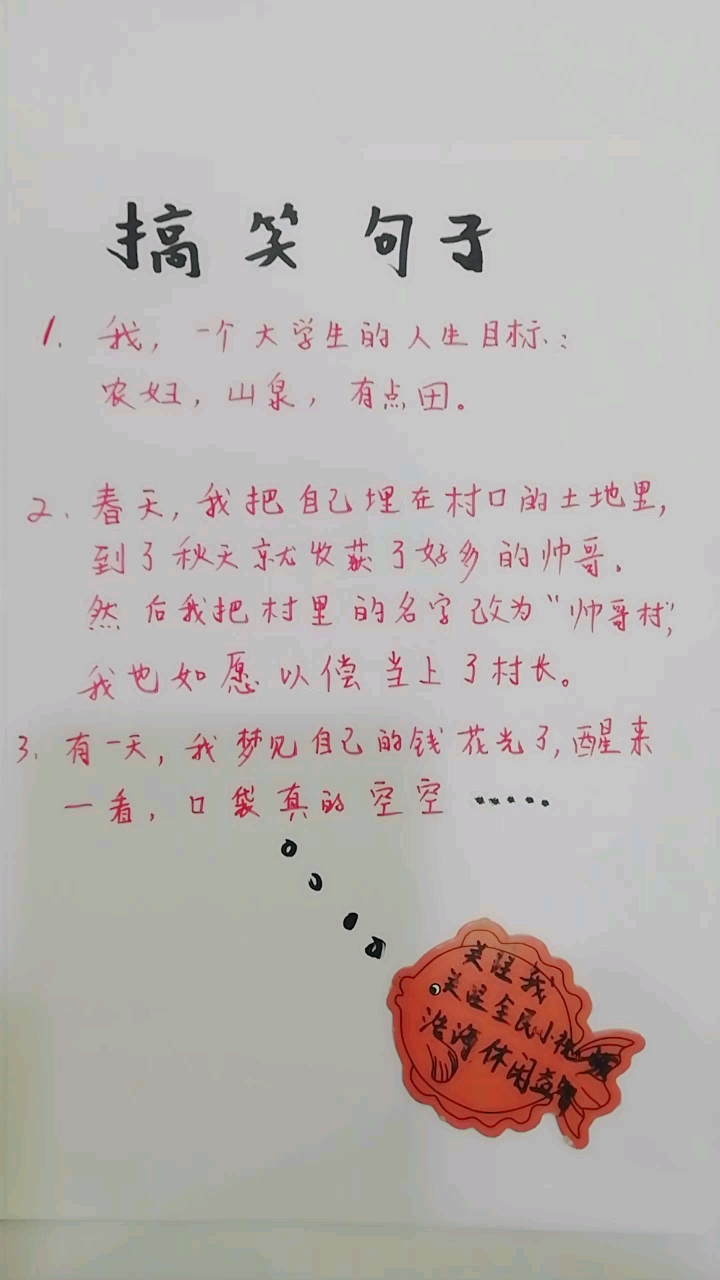 搞笑句子
1. 我，一个大学生的人生目标：
农妇，山泉，有点田。
2. 春天，我把自己埋在村口的土地里，
到了秋天就收获了好多的帅哥.
然后我把村里的名字改为“帅哥村”，
我也如愿以偿当上了村长。
3. 有一天，我梦见自己的钱花光了，醒来
一看，口袋真的空空.....
关注我
关注全民小视
浩海休闲